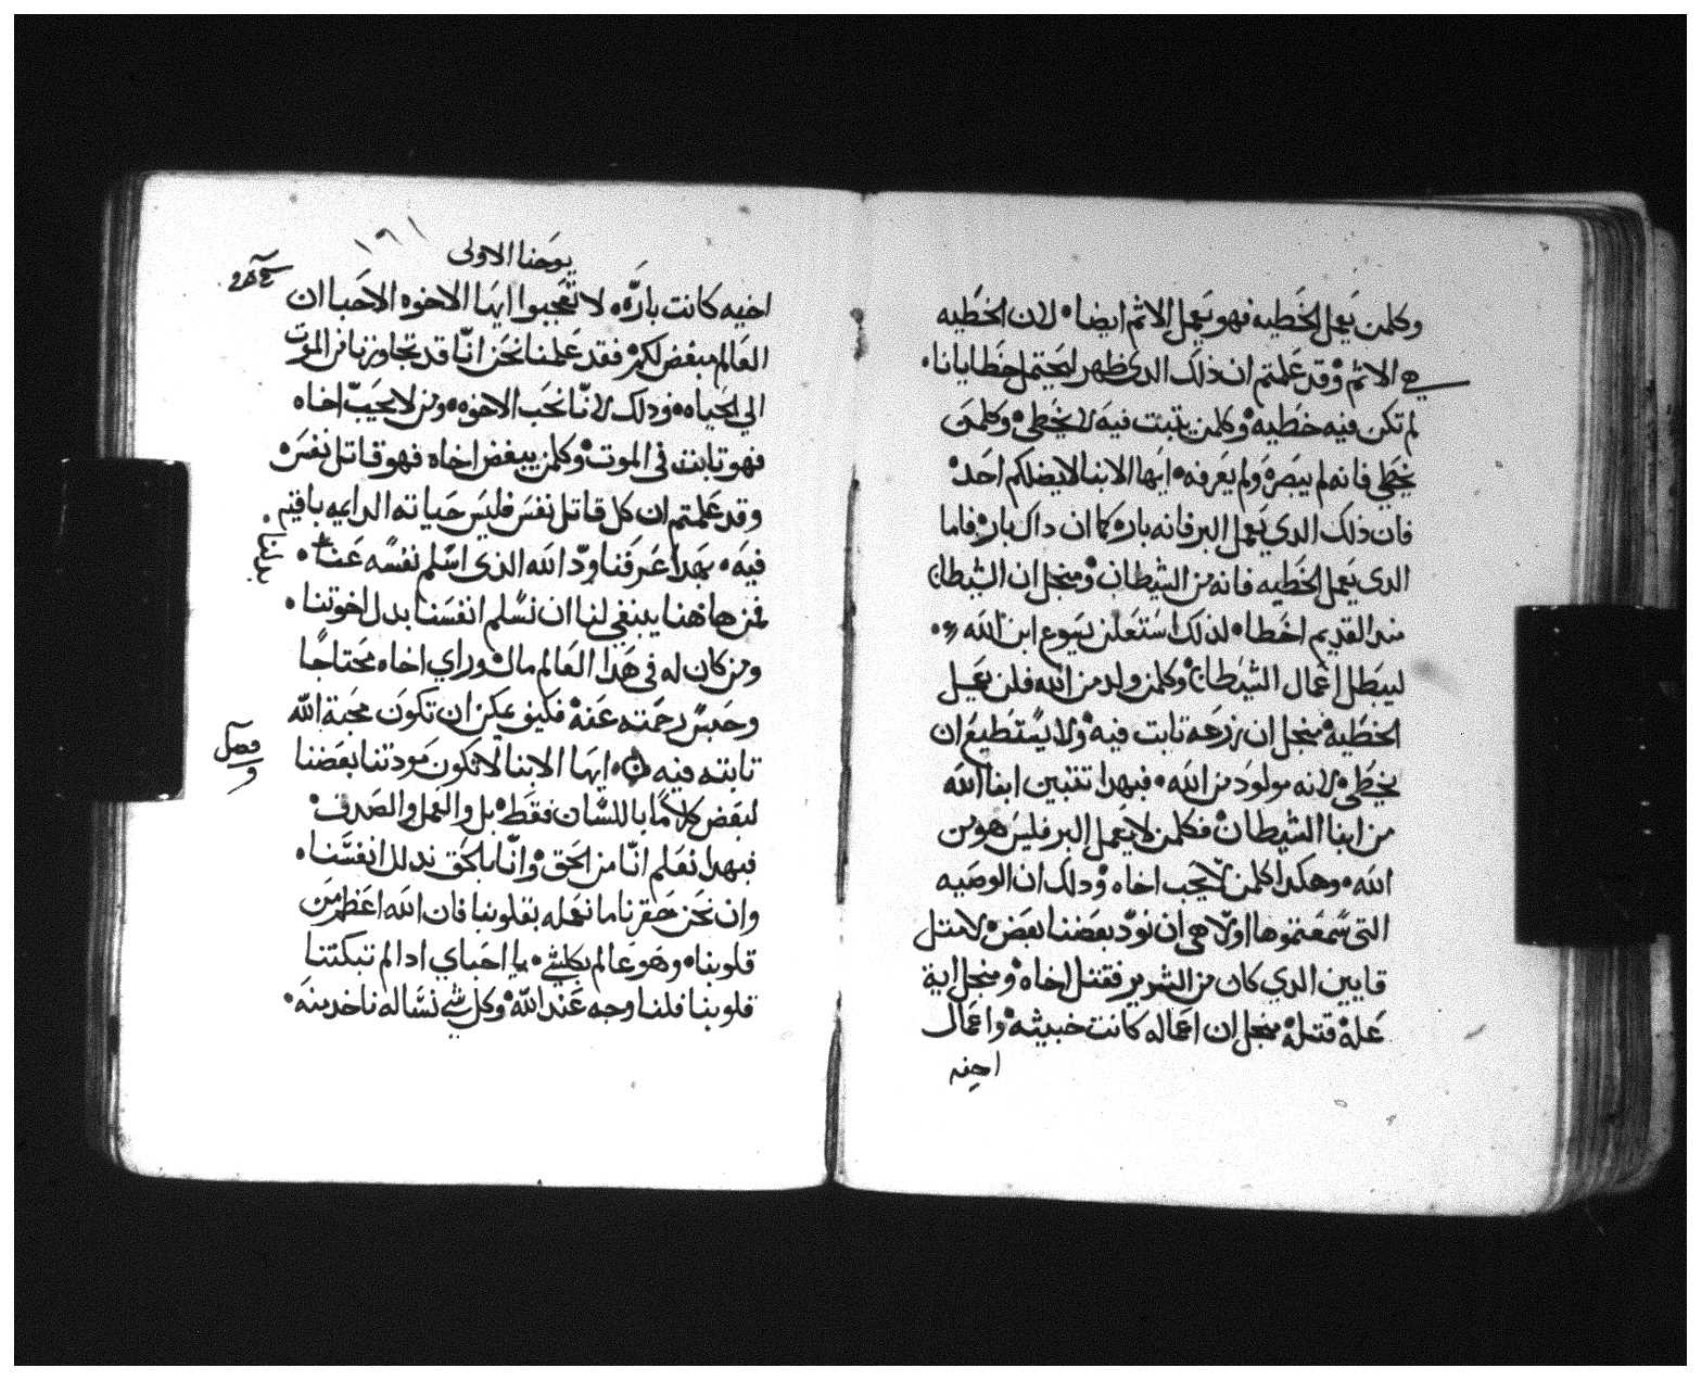 وكلمن يعمل الخطيه فهو يعمل الاثم ايضا لان الخطيه
هي الاثم وقد علمتم ان ذلك الدى ظهر ليحتمل خطايانا
لم تكن فيه خطيه وكلمن يتبت فيه لا يخطى وكلمن
يخطي فانه لم يبصره ولم يعرفه ايها الابنا لا يضلكم احد
فان ذلك الدي يعمل البر فانه بار كما ان داك بار فاما
الدى يعمل الخطيه فانه من الشيطان ومنجل ان الشيطان
مند القديم اخطا لذلك استعلن يسوع ابن الله
ليبطل اعمال الشيطان وكلمن ولد من الله فلن يعمل
الخطيه منجل ان زرعه تابت فيه ولا يستطيع ان
يخطى لانه مولود من الله فبهدا تتبين ابنا الله
من ابنا الشيطان فكلمن لا يعمل البر فليس هو من
الله وهكدا كلمن لا يحب اخاه ودلك ان الوصيه
التى سمعتموها اولا هي ان نود بعضنا بعض لا متل
قايين الدي كان من الشرير فقتل اخاه ومنجل اية
عله قتله منجل ان اعماله كانت خبيثه واعمال
اخيه
يوحنا الاولى
١٦١
اخيه كانت باره لا تعجبوا ايها الاخوه الاحبا ان
العالم مبغض لكم فقد علمنا نحن انا قد تجاوزنا من الموت
الي الحياه ودلك لانا نحب الاخوه ومن لا يحب اخاه
فهو تابت في الموت وكلمن يبغض اخاه فهو قاتل نفس
وقد علمتم ان كل قاتل نفس فليس حياته الدايمه باقيه
فيه بهدا عرفنا ود الله الذى اسلم نفسه عنا
بدلنا
فمن هاهنا ينبغي لنا ان نسلم انفسنا بدل اخوتنا
ومن كان له في هدا العالم مال وراي اخاه محتاجا
وحبس رحمته عنه فكيف يمكن ان تكون محبة الله
تابته فيه ايها الابنا لا تكون مودتنا بعضنا
فصل
لبعض كلاما باللسان فقط بل والعمل والصدق
فبهدا نعلم انا من الحق وانا بالحق ندلل انفسنا
وان نحن حقرنا ما نعمله بقلوبنا فان الله اعظم من
قلوبنا وهو عالم بكلشي يا احباي ادا لم تبكتنا
قلوبنا فلنا وجه عند الله وكل شي نساله ناخد منه